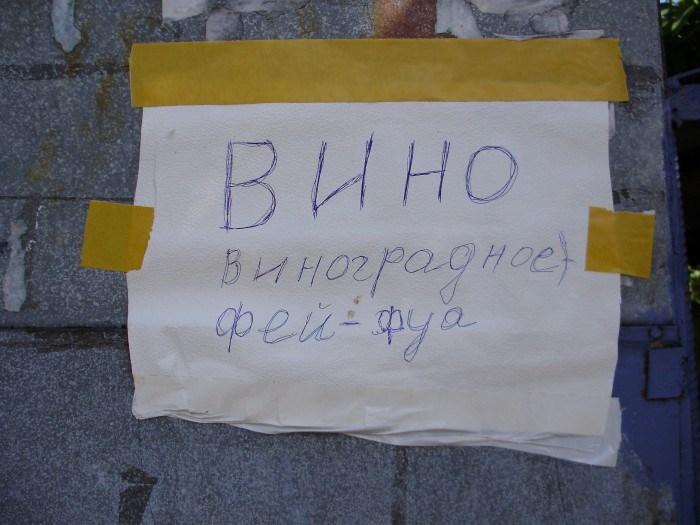 ВИНО
виноградное+
фей-фуа